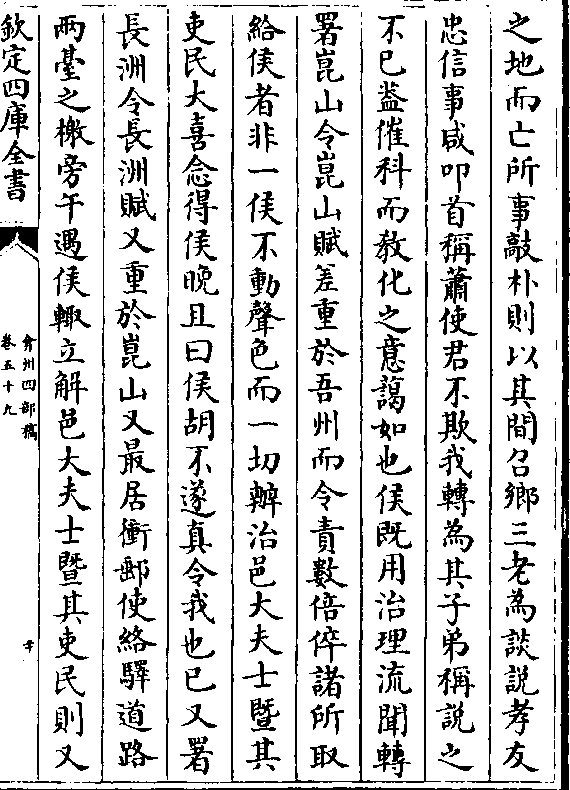 之地而亡所事敲朴則以其間召鄉三老為談説孝友
忠信事咸叩首稱蕭使君不欺我轉為其子弟稱說之
不已葢催科而教化之意藹如也侯既用治理流聞轉
署崑山令崑山賦差重於吾州而令責數倍倅諸所取
給侯者非一侯不動聲色而一切辦治邑大夫士暨其
吏民大喜念得侯晚且曰侯胡不遂真令我也已又署
長洲令長洲賦又重於崑山又最居衝郵使絡驛道路
兩臺之檄旁午遇侯輙立解邑大夫士暨其吏民則又
欽定四庫全書
弇州四部稿
卷五十九